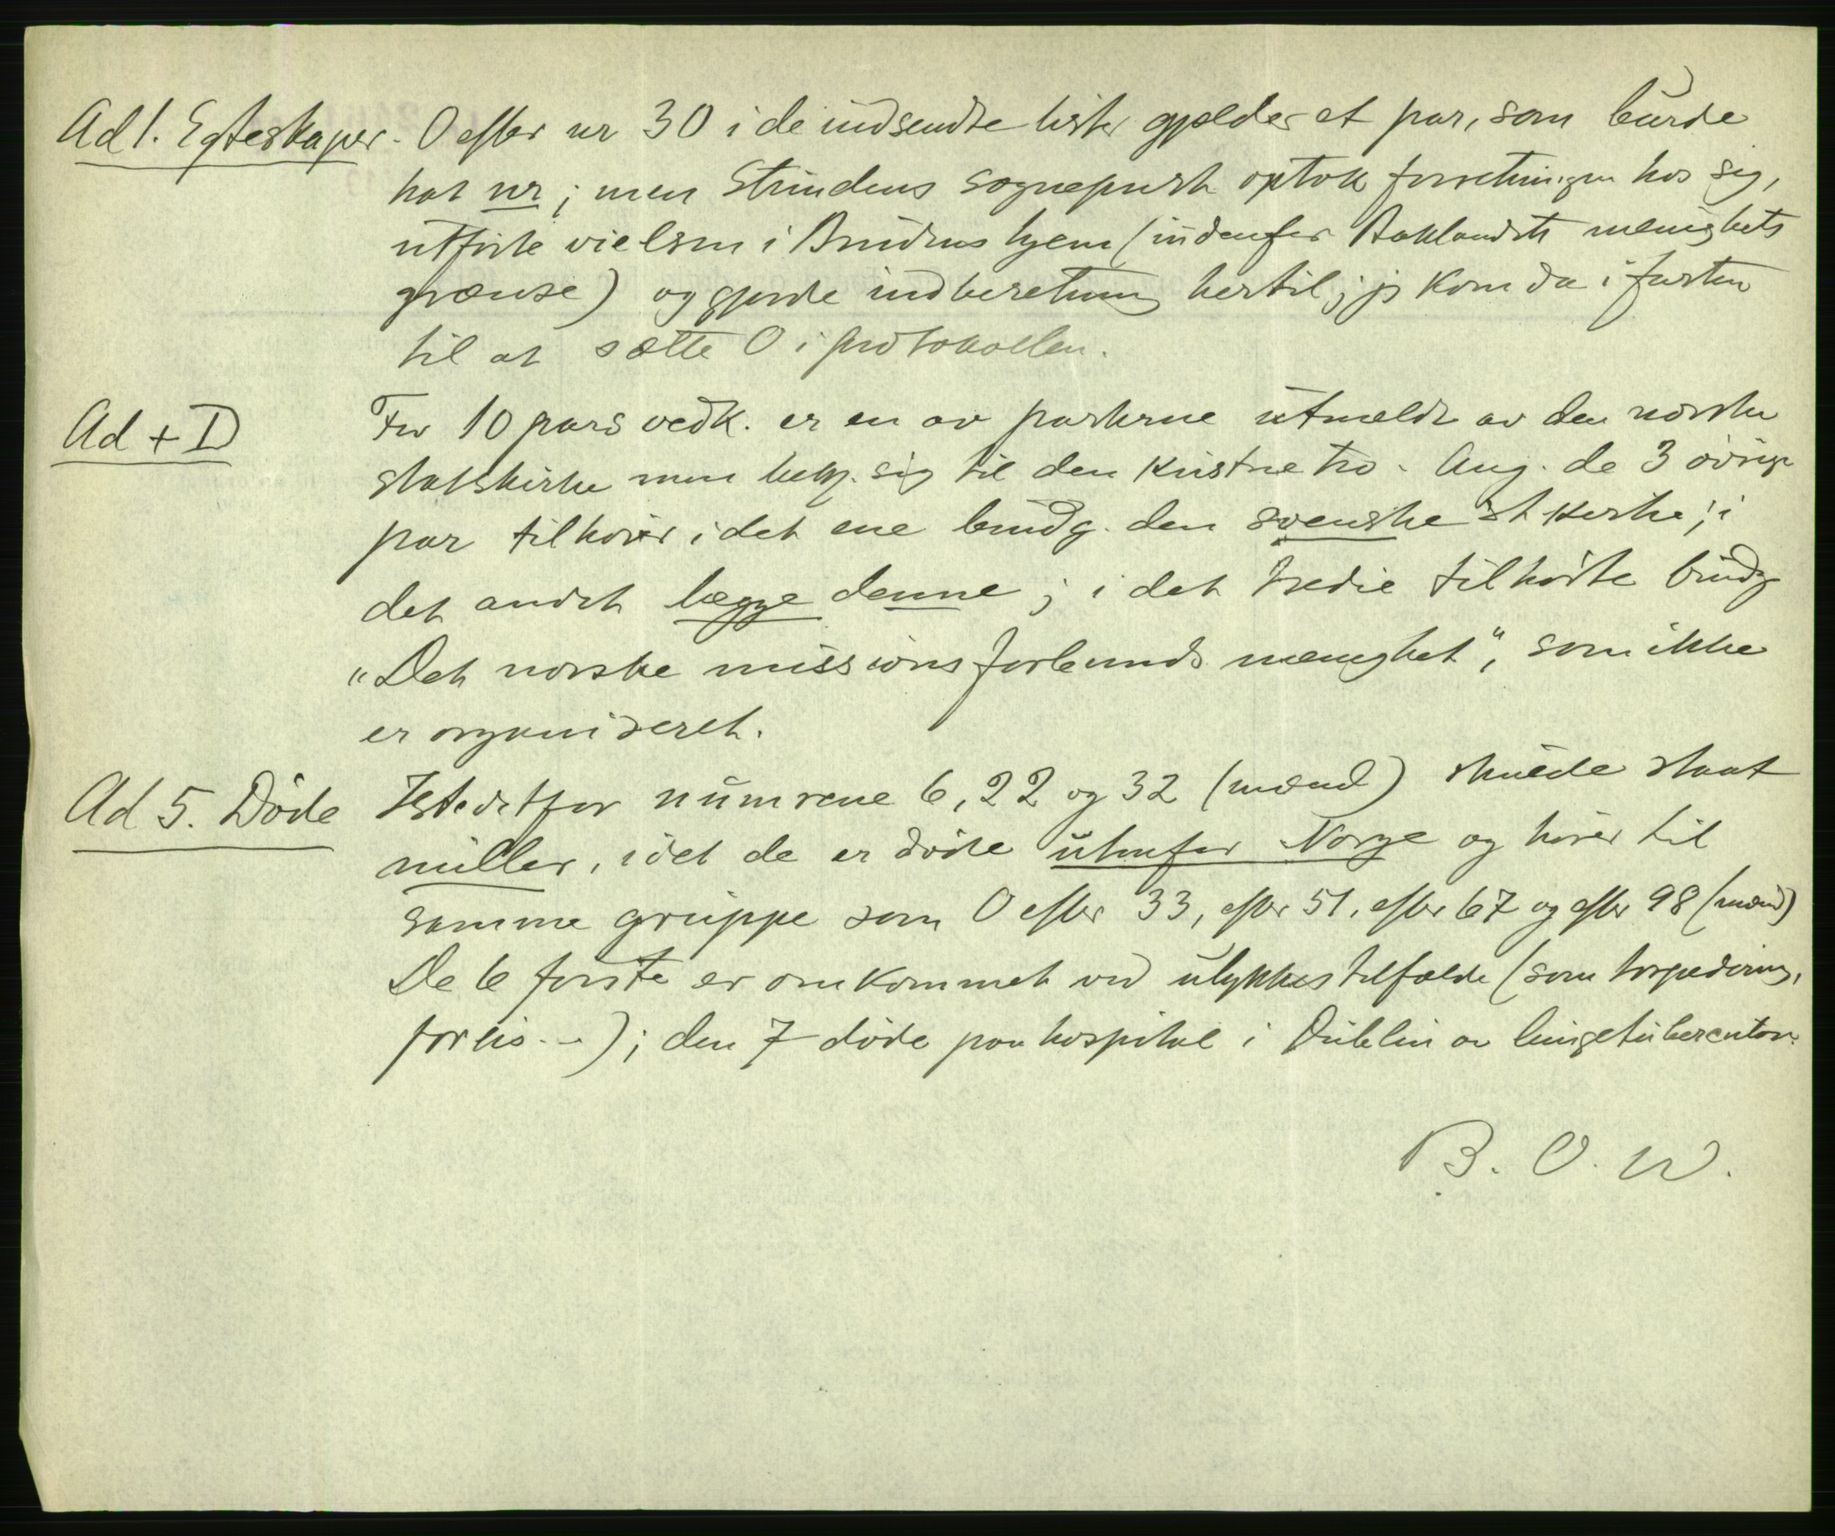 Ad 1. Egteskaper. 0 efter nr 30 i de indsendte lister gjælder et par, som burde
hat nr; men Strindens sogneprest optok forretningen hos sig,
utførte vielsen i Brudens hjem (indenfor Baklandets menighets
grænse) og gjorde indberetning hertil; jeg kom da i farten
til at sætte 0 i protokollen.
Ad + D For 10 pars vedk. er en av parterne utmeldt av den norske
statskirke men bekj. sig til den kristne tro. Ang. de 3 øvrige
par tilhører i det ene brudg. den svenske st kirke; i
det andet begge denne; i det tredie tilhørte brudg
"Det norske missionsforbunds menighet", som ikke
er organiseret.
Ad 5. Døde Istedetfor numrene 6, 22 og 32 (mænd) skulde staat
nuller, idet de er døde utenfor Norge og hører til
samme gruppe som 0 efter 33, efter 51, efter 67 og efter 98 (mænd)
De 6 første er omkommet ved ulykkestilfælde (som torpedering,
forlis - -); den 7 døde paa hospital i Dublin av lungetuberculose.
B. O. W.